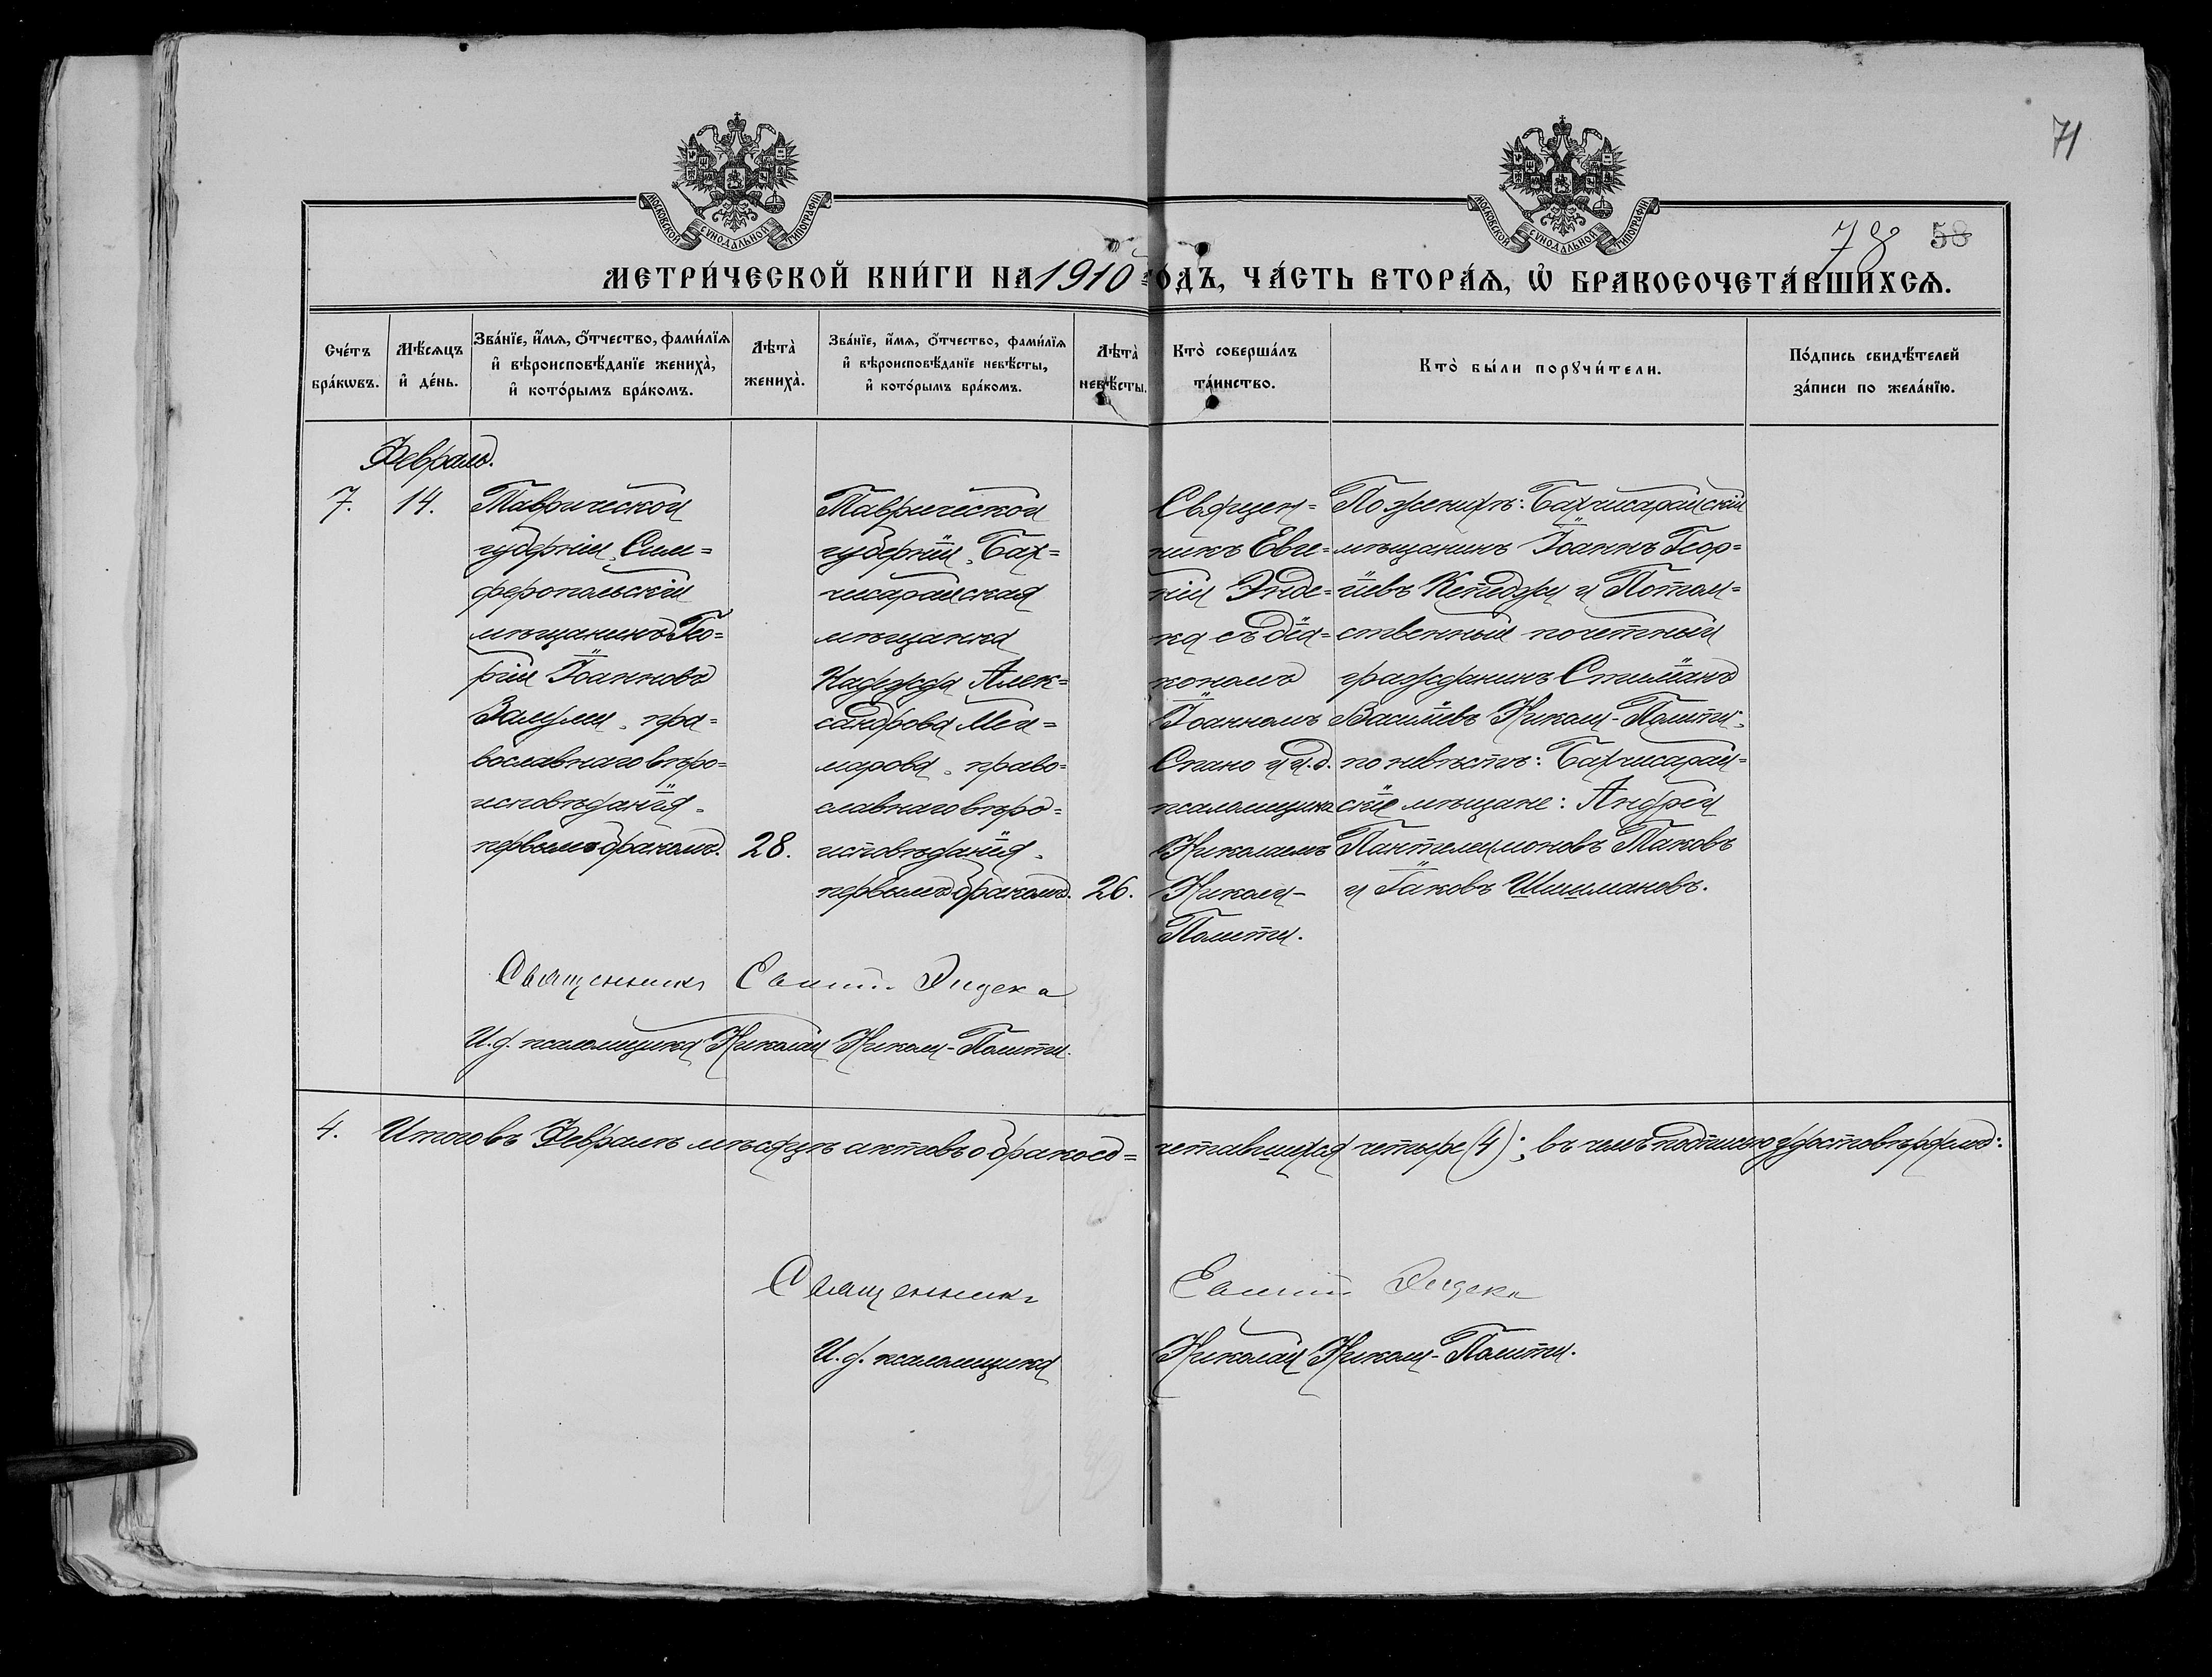 71
78 58
МОСКОВСКОЙ СУНОДАЛЬНОЙ ТИПОГРАФІИ
МОСКОВСКОЙ СУНОДАЛЬНОЙ ТИПОГРАФІИ
МЕТРИ́ЧЕСКОЙ КНИ́ГИ НА 1910 ГО́ДЪ, ЧА́СТЬ ВТОРА́Ѧ, Ѽ БРАКОСОЧЕТА́ВШИХСѦ.
Сче́тъ бра́кѡвъ.
Мѣ́сѧцъ и҆ де́нь.
Зва́нїе, и҆́мѧ, ѻ҆́тчество, фами́лїѧ и҆ вѣроисповѣ́данїе жениха̀, и҆ кото́рымъ бра́комъ.
Лѣта̀ жениха̀.
Зва́нїе, и҆́мѧ, ѻ҆́тчество, фами́лїѧ и҆ вѣроисповѣ́данїе невѣ́сты, и҆ кото́рымъ бра́комъ.
Лѣта̀ невѣ́сты.
Кто̀ соверша́лъ та́инство.
Кто̀ бы́ли порꙋчи́тели.
По́дпись свидѣ́телей за́писи по жела́нїю.
Февраль.
7.
14.
Таврической
губерніи, Сим=
феропольскій
мѣщанинъ Гео=
ргій Іоанновъ
пра=
вославнаго вѣро=
исповѣданія,
первымъ бракомъ.
28.
Таврической
губерніи, Бах=
чисарайская
мѣщанка
Надежда Алек=
сандрова Мей=
марова, право=
славнаго вѣро=
исповѣданія,
первымъ бракомъ.
26.
Священ=
никъ Евге=
ній Энде=
ка съ діа=
кономъ
Іоанномъ
Спано и и.д.
псаломщика
Николаемъ
Николи-
Політи.
По женихѣ: Бахчисарайскій
мѣщанинъ Іоаннъ Геор=
гіевъ Кепеджи и Потом=
ственный почетный
гражданинъ Стиліанъ
Василіевъ Николи-Політи;
по невѣстѣ: Бахчисарай=
скіе мѣщане: Андрей
Пантелеимоновъ Таковъ
и Іаковъ Шишмановъ.
Священникъ Евгеній Эндека
И.д. псаломщика Николай Николи-Політи.
4. Итого въ Февралѣ мѣсяцѣ актовъ о бракосо=четавшихся четыре (4); въ чемъ подписью удостовѣряемъ:
Священникъ Евгеній Эндека
И.д. псаломщика Николай Николи-Політи.